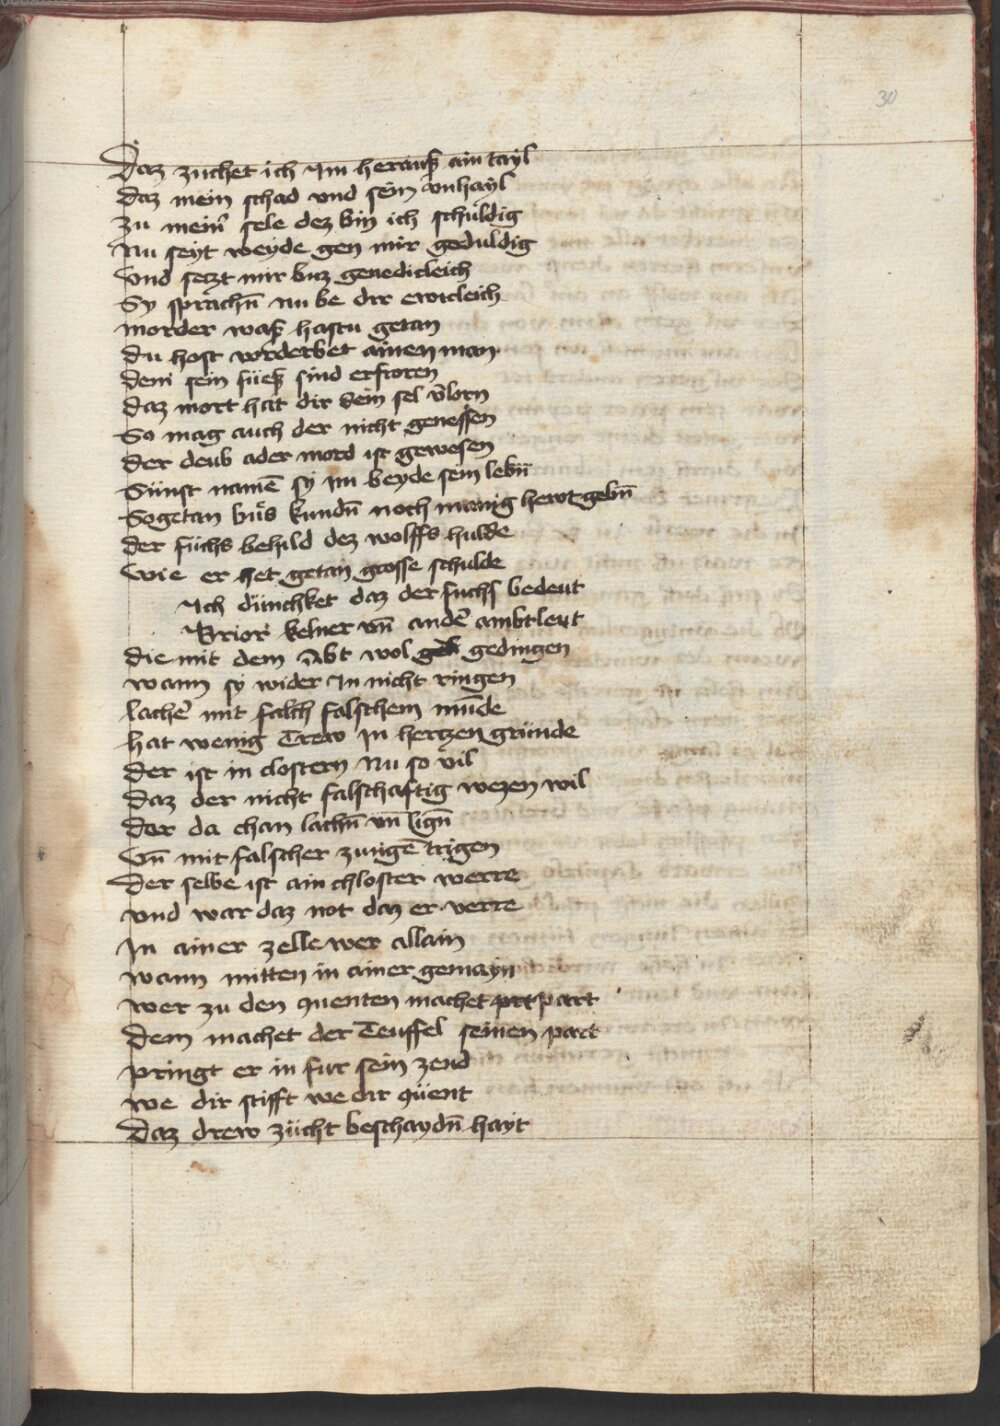 30
Daz zuchet ich Im herauß ain tayl
daz mein schad vnd sein vnhayl
zu meinˀ sele dez bin ich schuldig
Nu seyt weyde gen mir geduldig
Vnd setzt mir buz genedicleich
Sy sprachn̄ nu be dir ewicleich
morder waß hastu getan
du host vorderbet ainen man
dem sein füeß sind erfroren
daz mort hat dir dein sel v̄lorn
So mag auch der nicht genessen
der deub ader mord ist gewesen
Sünst namē sy im beyde sein lebn̄
Sogetan bus kundn̄ noch manig herot gebn̄
der fuchs behild dez wolffs hulde
wie er het getan grosse schulde
Ich dünchket daz der fuchs bedeut
Prior kelner vn̄ ander ambtleut
die mit dem Abt wol gedingen
wann sy wider In nicht ringen
lachē mit falch falschem mūde
hat wenig Trew In hertzen grunde
der ist in clostern Nu so vil
daz der nicht falschaftig wezen wil
der da chan lachn̄ vn̄ lign̄
Vn̄ mit falscher zungē trigen
der selbe ist ain chloster werre
vnd war daz not daz er verre
In ainer zelle wer allain
wann mitten in ainer gemayn
wer zu den quenten machet prt part
dem machet der Teuffel seinen part
pringt er in fur sein zend
we dir stifft we dir qüent
daz drew zücht beschaydn̄ hayt